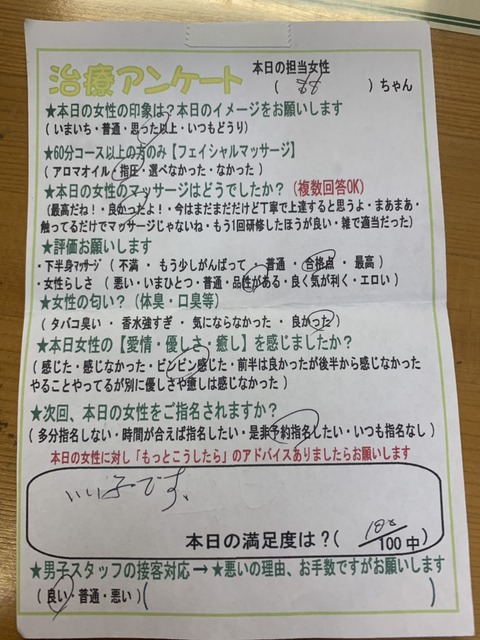 治療アンケート
本日の担当女性
( )ちゃん
★本日の女性の印象は?本日のイメージをお願いします
(いまいち・普通・思った以上・いつもどうり)
★60分コース以上の方のみ【フェイシャルマッサージ】
(アロマオイル・指圧・選べなかった・なかった)
★本日の女性のマッサージはどうでしたか?(複数回答OK)
(最高だね!・良かったよ!・今はまだまだだけど丁寧で上達すると思うよ・まあまあ・
触ってるだけでマッサージじゃないね・もう1回研修したほうが良い・雑で適当だった)
★評価お願いします
・下半身マッサージ(不満・もう少しがんばって・普通・合格点・最高)
・女性らしさ(悪い・いまひとつ・普通・品性がある・良く気が利く・エロい)
★女性の匂い?(体臭・口臭等)
(タバコ臭い・香水強すぎ・気にならなかった・良かった)
★本日女性の【愛情・優しさ・癒し】を感じましたか?
(感じた・感じなかった・ビンビン感じた・前半は良かったが後半から感じなかった
やることやってるが別に優しさや癒しは感じなかった)
★次回、本日の女性をご指名されますか?
(多分指名しない・時間が合えば指名したい・是非予約指名したい・いつも指名なし)
本日の女性に対し「もっとこうしたら」のアドバイスありましたらお願いします
いい子です、
本日の満足度は?( 100/100中)
★男子スタッフの接客対応→★悪いの理由、お手数ですがお願いします
(良い・普通・悪い)( )